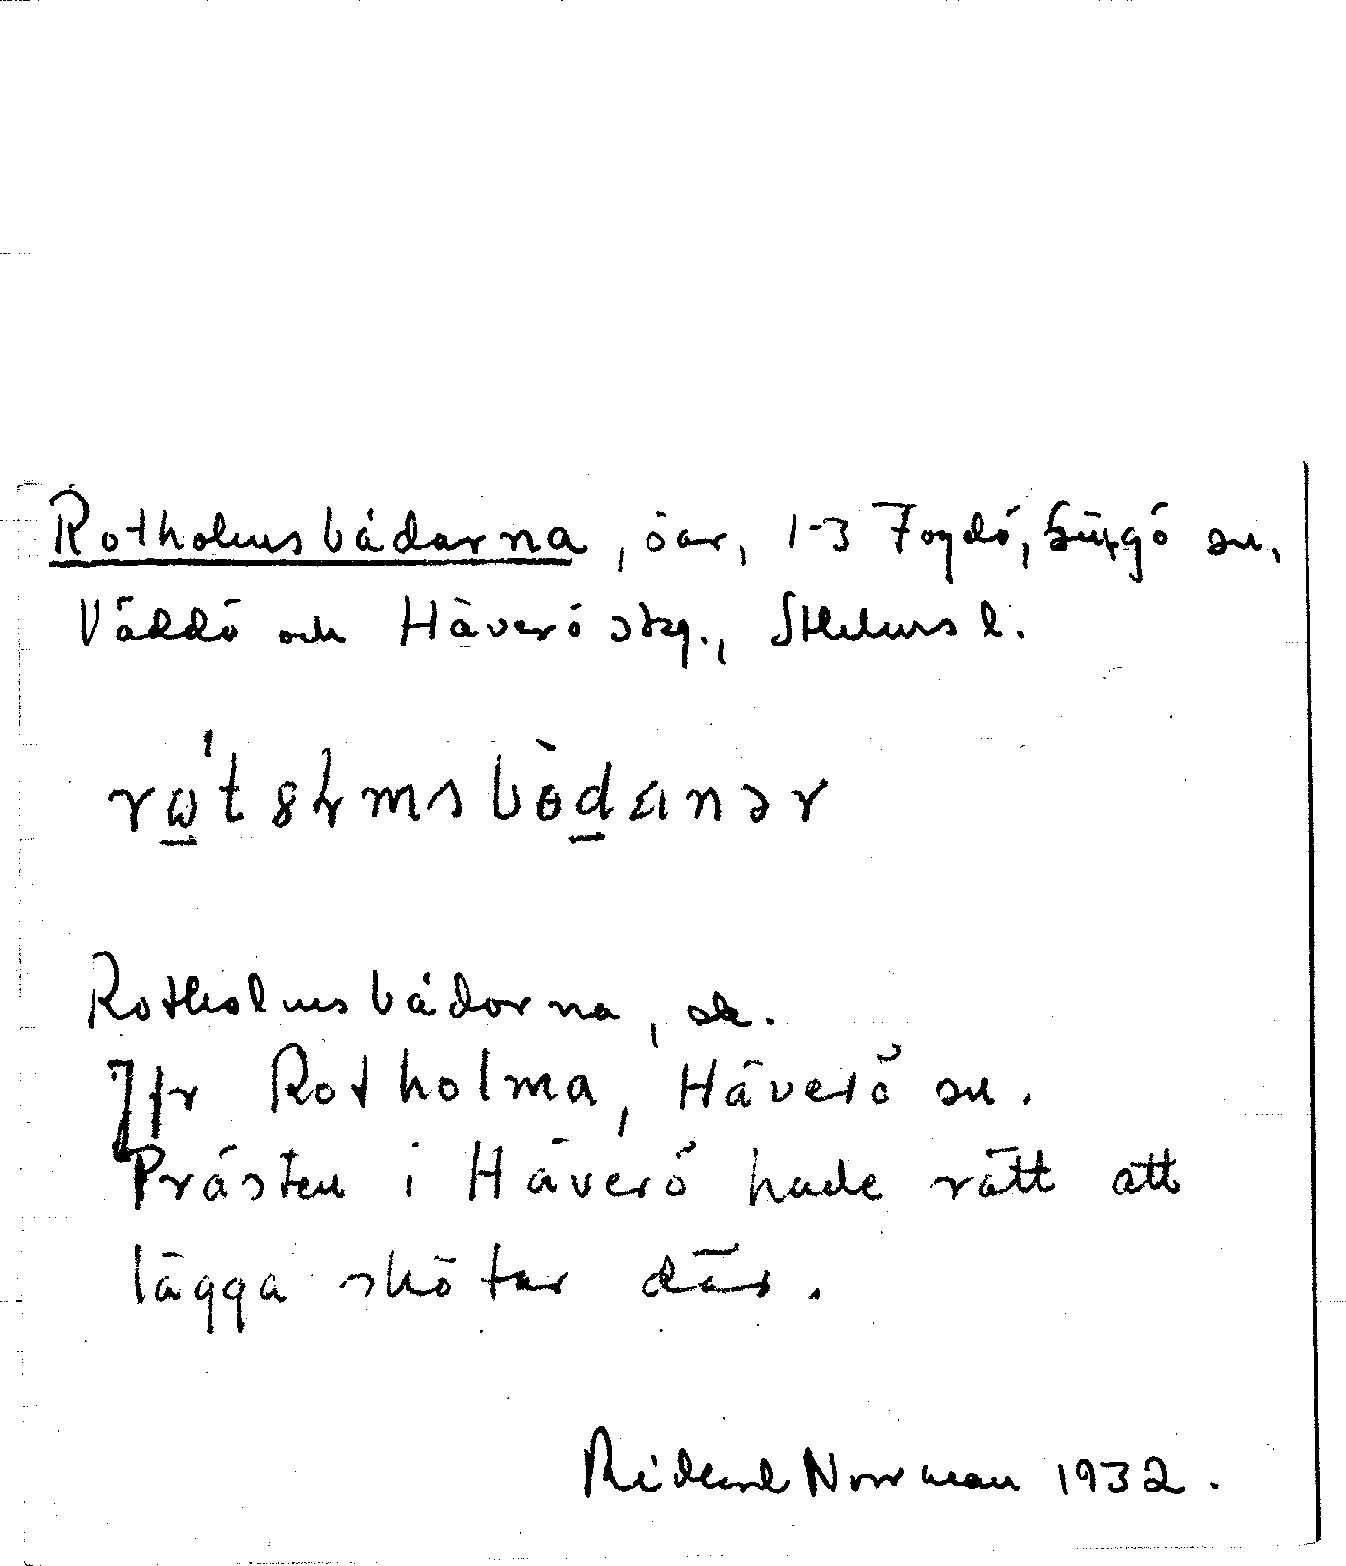 Rotholmsbådarna, öar, 1-3 Fogdö, Singö sn,
Väddö och Häverö skg., Sthlms l.
Rotholmsbådorna, sk.
Jfr Rotholma, Häverö sn.
Prästen i Häverö hade rätt att
lägga skötar där.
Rickard Norrman 1932.